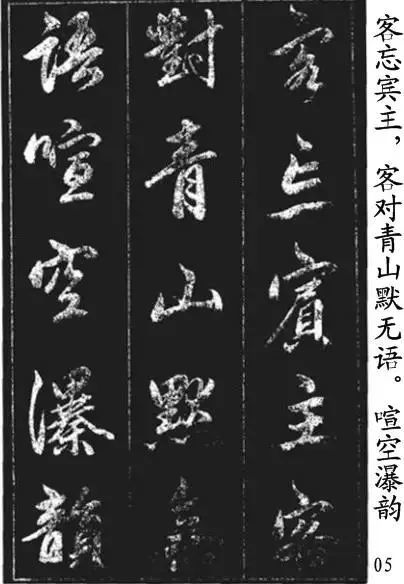 客忘宾主，客对青山默无语。喧空瀑韵
05
客忘賓主客
對青山默無
語喧空瀑韻